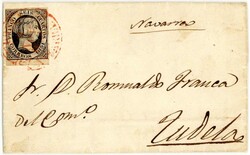 Navarra
Sr. D. Romualdo Franca
Del Comº.
Tudela